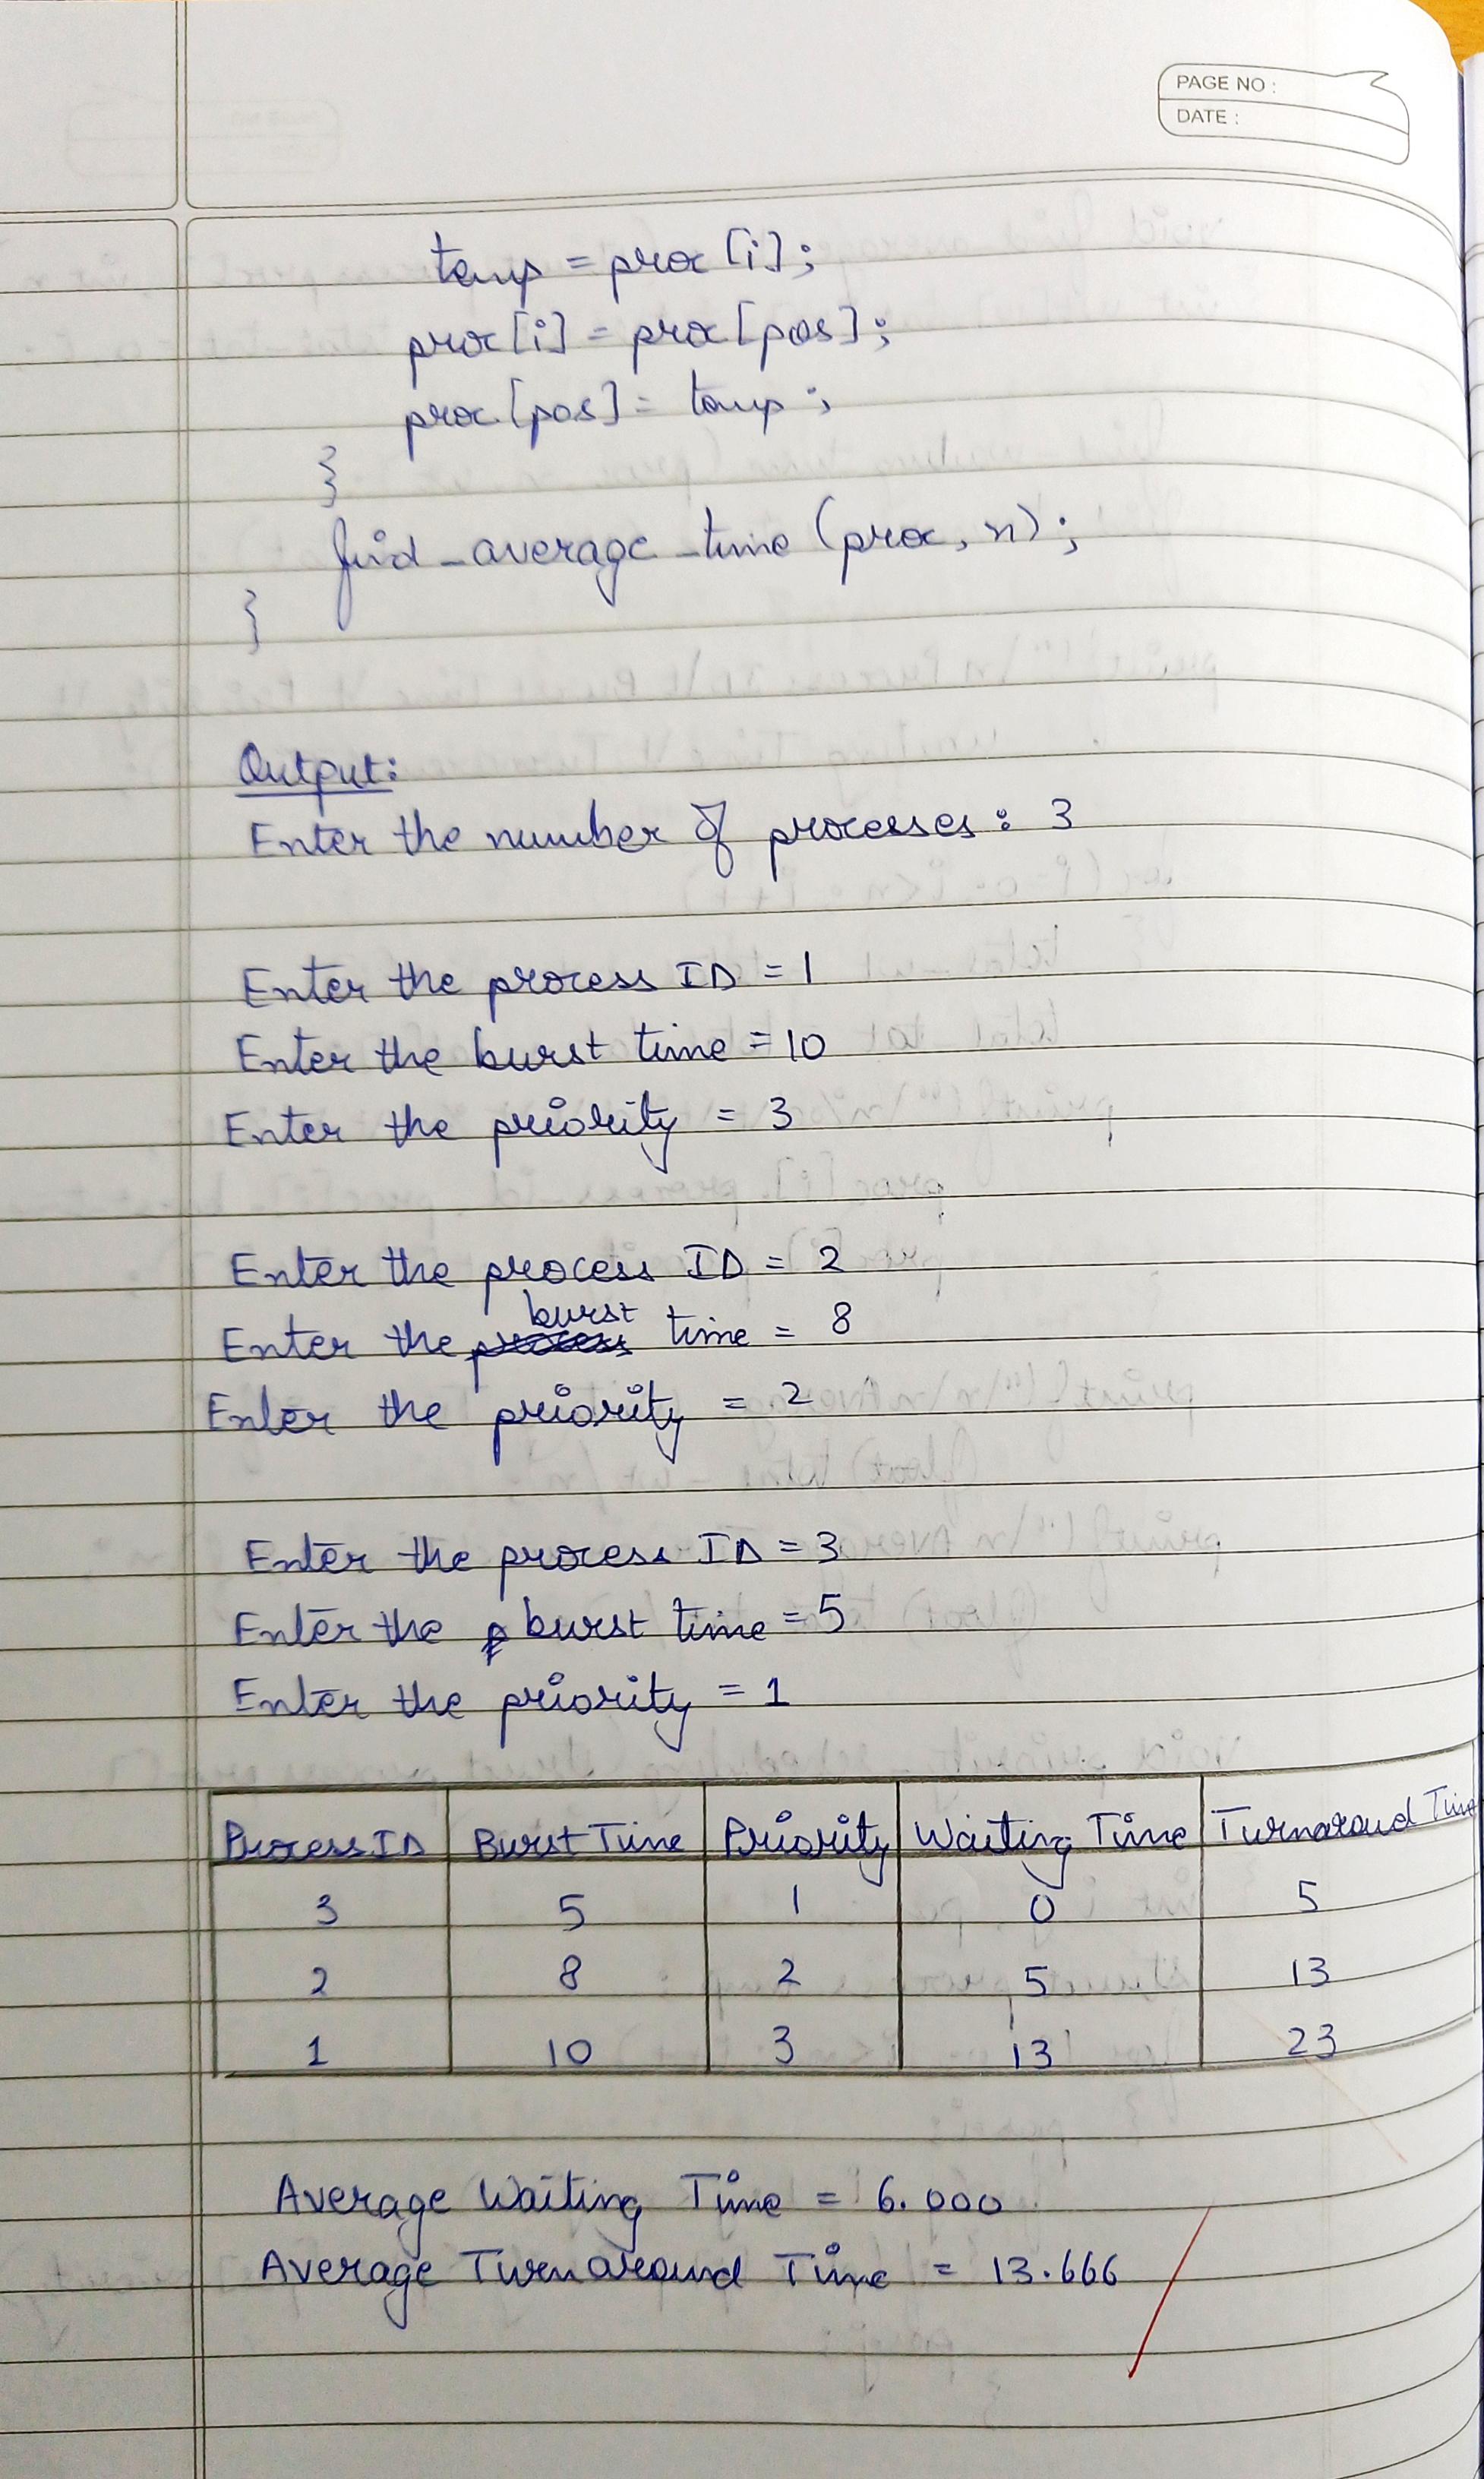 PAGE NO :
DATE :
temp = proc [i];
proc[i] = proc[pos];
proc[pos] = temp ;
}
find_average_time (proc, n);
}
Output:
Enter the number of processes: 3
Enter the process ID = 1
Enter the burst time = 10
Enter the priority = 3
Enter the process ID = 2
Enter the burst time = 8
Enter the priority = 2
Enter the process ID = 3
Enter the burst time = 5
Enter the priority = 1
Process ID Burst Time Priority Waiting Time Turnaroud Time
3 5 1 0 5
2 8 2 5 13
1 10 3 13 23
Average Waiting Time = 6.000
Average Turnaround Time = 13.666